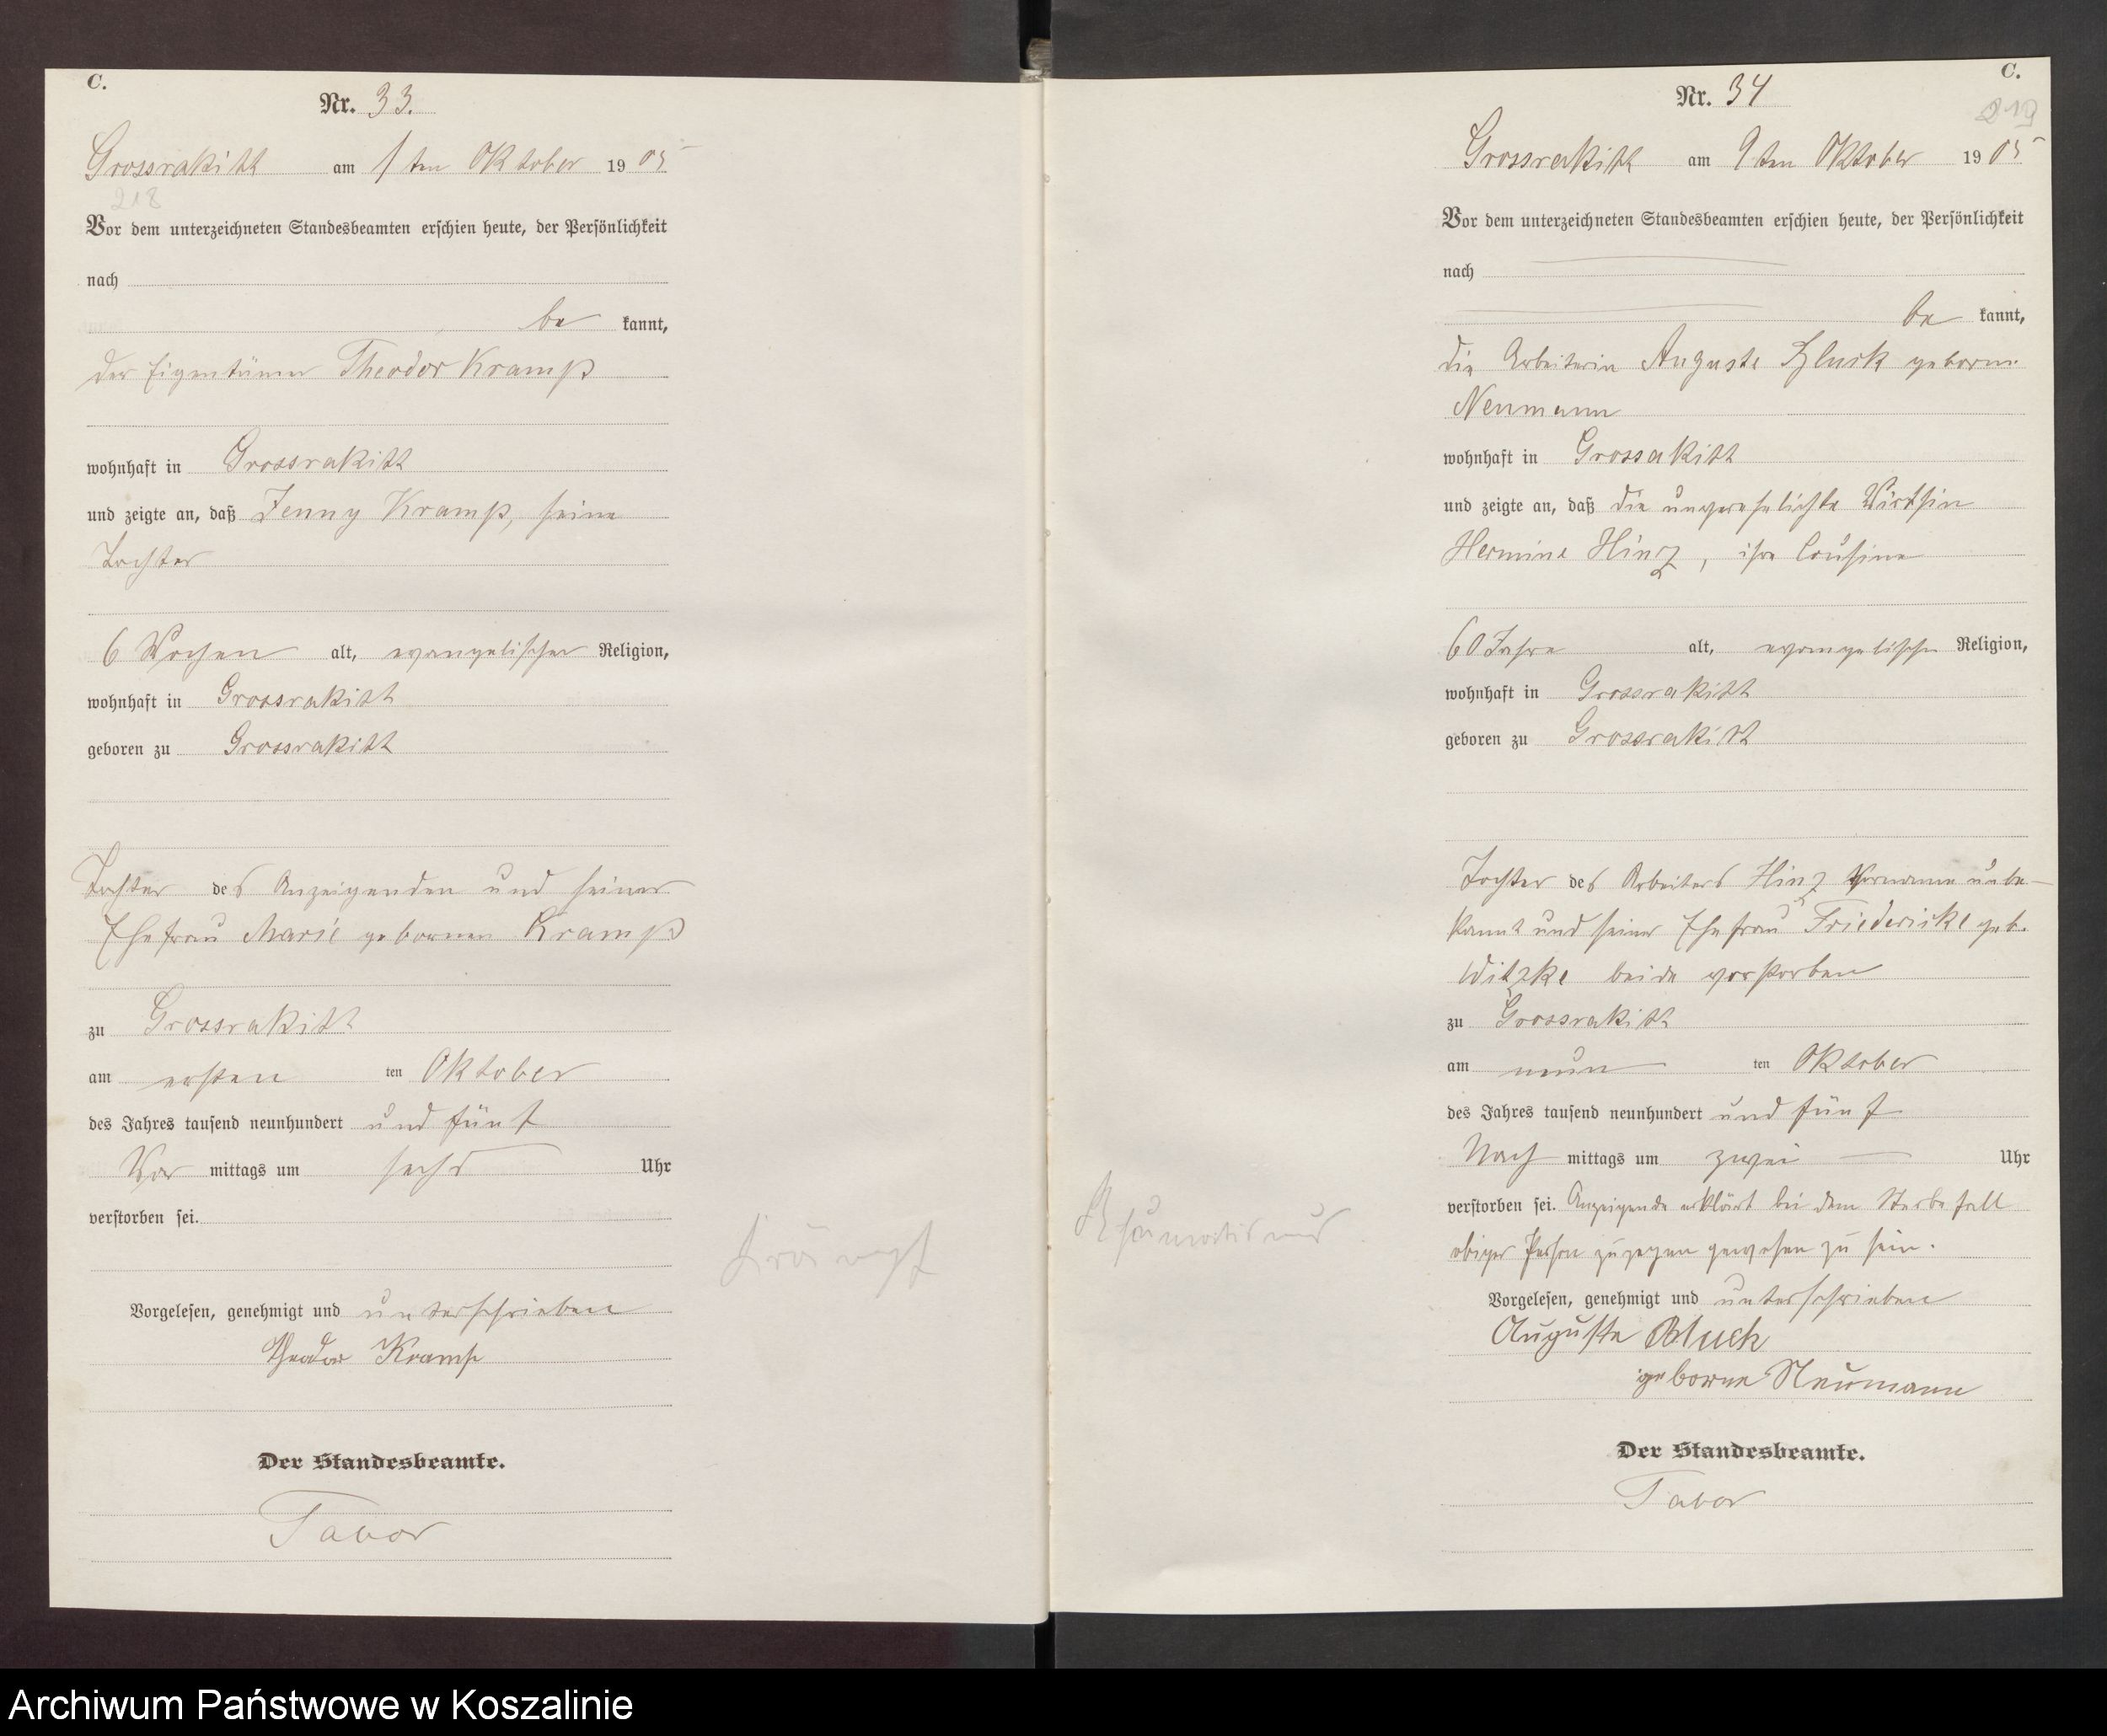 C.
Nr. 33.
Grossrakitt am 1ten Oktober 1905
218
Vor dem unterzeichneten Standesbeamten erschien heute, der Persönlichkeit
nach
be kannt,
der Eigentümer Theodor Kramp
wohnhaft in Grossrakitt
und zeigte an, daß Jenny Kramp, seine
Tochter
6 Wochen alt, evangelischer Religion,
wohnhaft in Grossrakitt
geboren zu Grossrakitt
Tochter des Anzeigenden und seiner
Ehefrau Marie gebornen Kramp
zu Grossrakitt
am ersten ten Oktober
des Jahres tausend neunhundert und fünf
Vor mittags um sechs Uhr
verstorben sei.
Krämpf
Vorgelesen, genehmigt und unterschrieben
Theodor Kramp
Der Standesbeamte.
Tabor
C.
Nr. 34
219
Grossrakitt am 9ten Oktober 1905
Vor dem unterzeichneten Standesbeamten erschien heute, der Persönlichkeit
nach
be kannt,
die Arbeiterin Auguste geborne
Neumann
wohnhaft in Grossakitt
und zeigte an, daß die unverehelichte Wirthin
Hermine Hinz, ihre Cousine
60 Jahre alt, evangelischer Religion,
wohnhaft in Grossrakitt
geboren zu Grossrakitt
Tochter des Arbeiters Hinz Vorname unbe-
kannt und seiner Ehefrau Friedericke geb.
Witzke beide verstorben
zu Grossrakitt
am neun ten Oktober
des Jahres tausend neunhundert und fünf
Nach mittags um zwei Uhr
verstorben sei. Anzeigende erklärt bei dem Sterbefall
obiger Person zugegen gewesen zu sein.
Rheumatismus
Vorgelesen, genehmigt und unterschrieben
Auguste
geborne Neumann
Der Standesbeamte.
Tabor
Archiwum Państwowe w Koszalinie